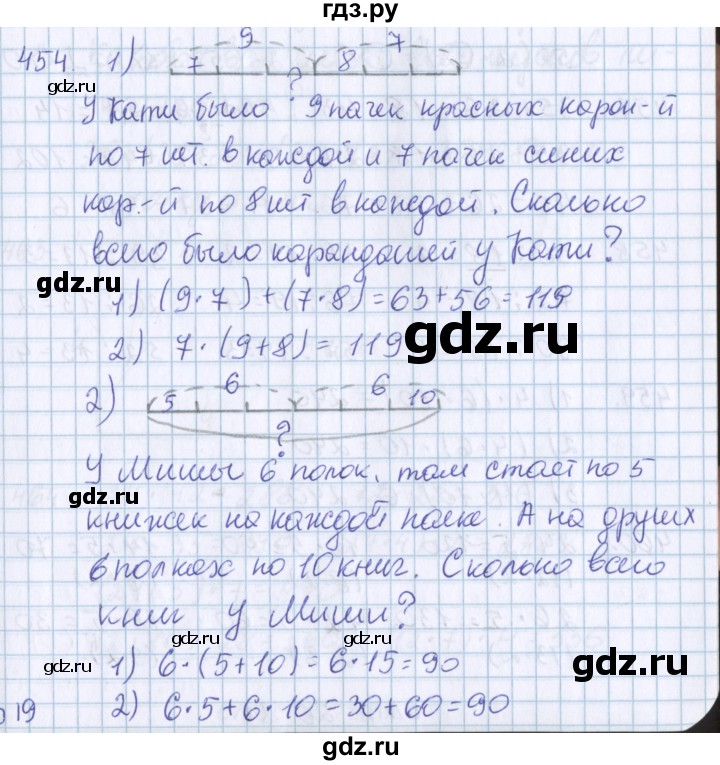 гдз.ру
454. 1) 7 9 8 7
?
У Кати было 9 пачек красных каран-й
по 7 шт. в каждой и 7 пачек синих
кар.-й по 8 шт в каждой. Сколько
всего было карандашей у Кати?
gdz.ru
1) (9·7)+(7·8)=63+56=119
2) 7·(9+8)=119
gdz.ru
2) 5 6 6 10
?
У Мишы 6 полок, там стаят по 5
gdz.ru gdz.ru
книжек на каждой полке. А на других
6 полках по 10 книг. Сколько всего
книг у Миши?
gdz.ru gdz.ru gdz.ru
1) 6·(5+10)=6·15=90
19 2) 6·5+6·10=30+60=90
gdz.ru